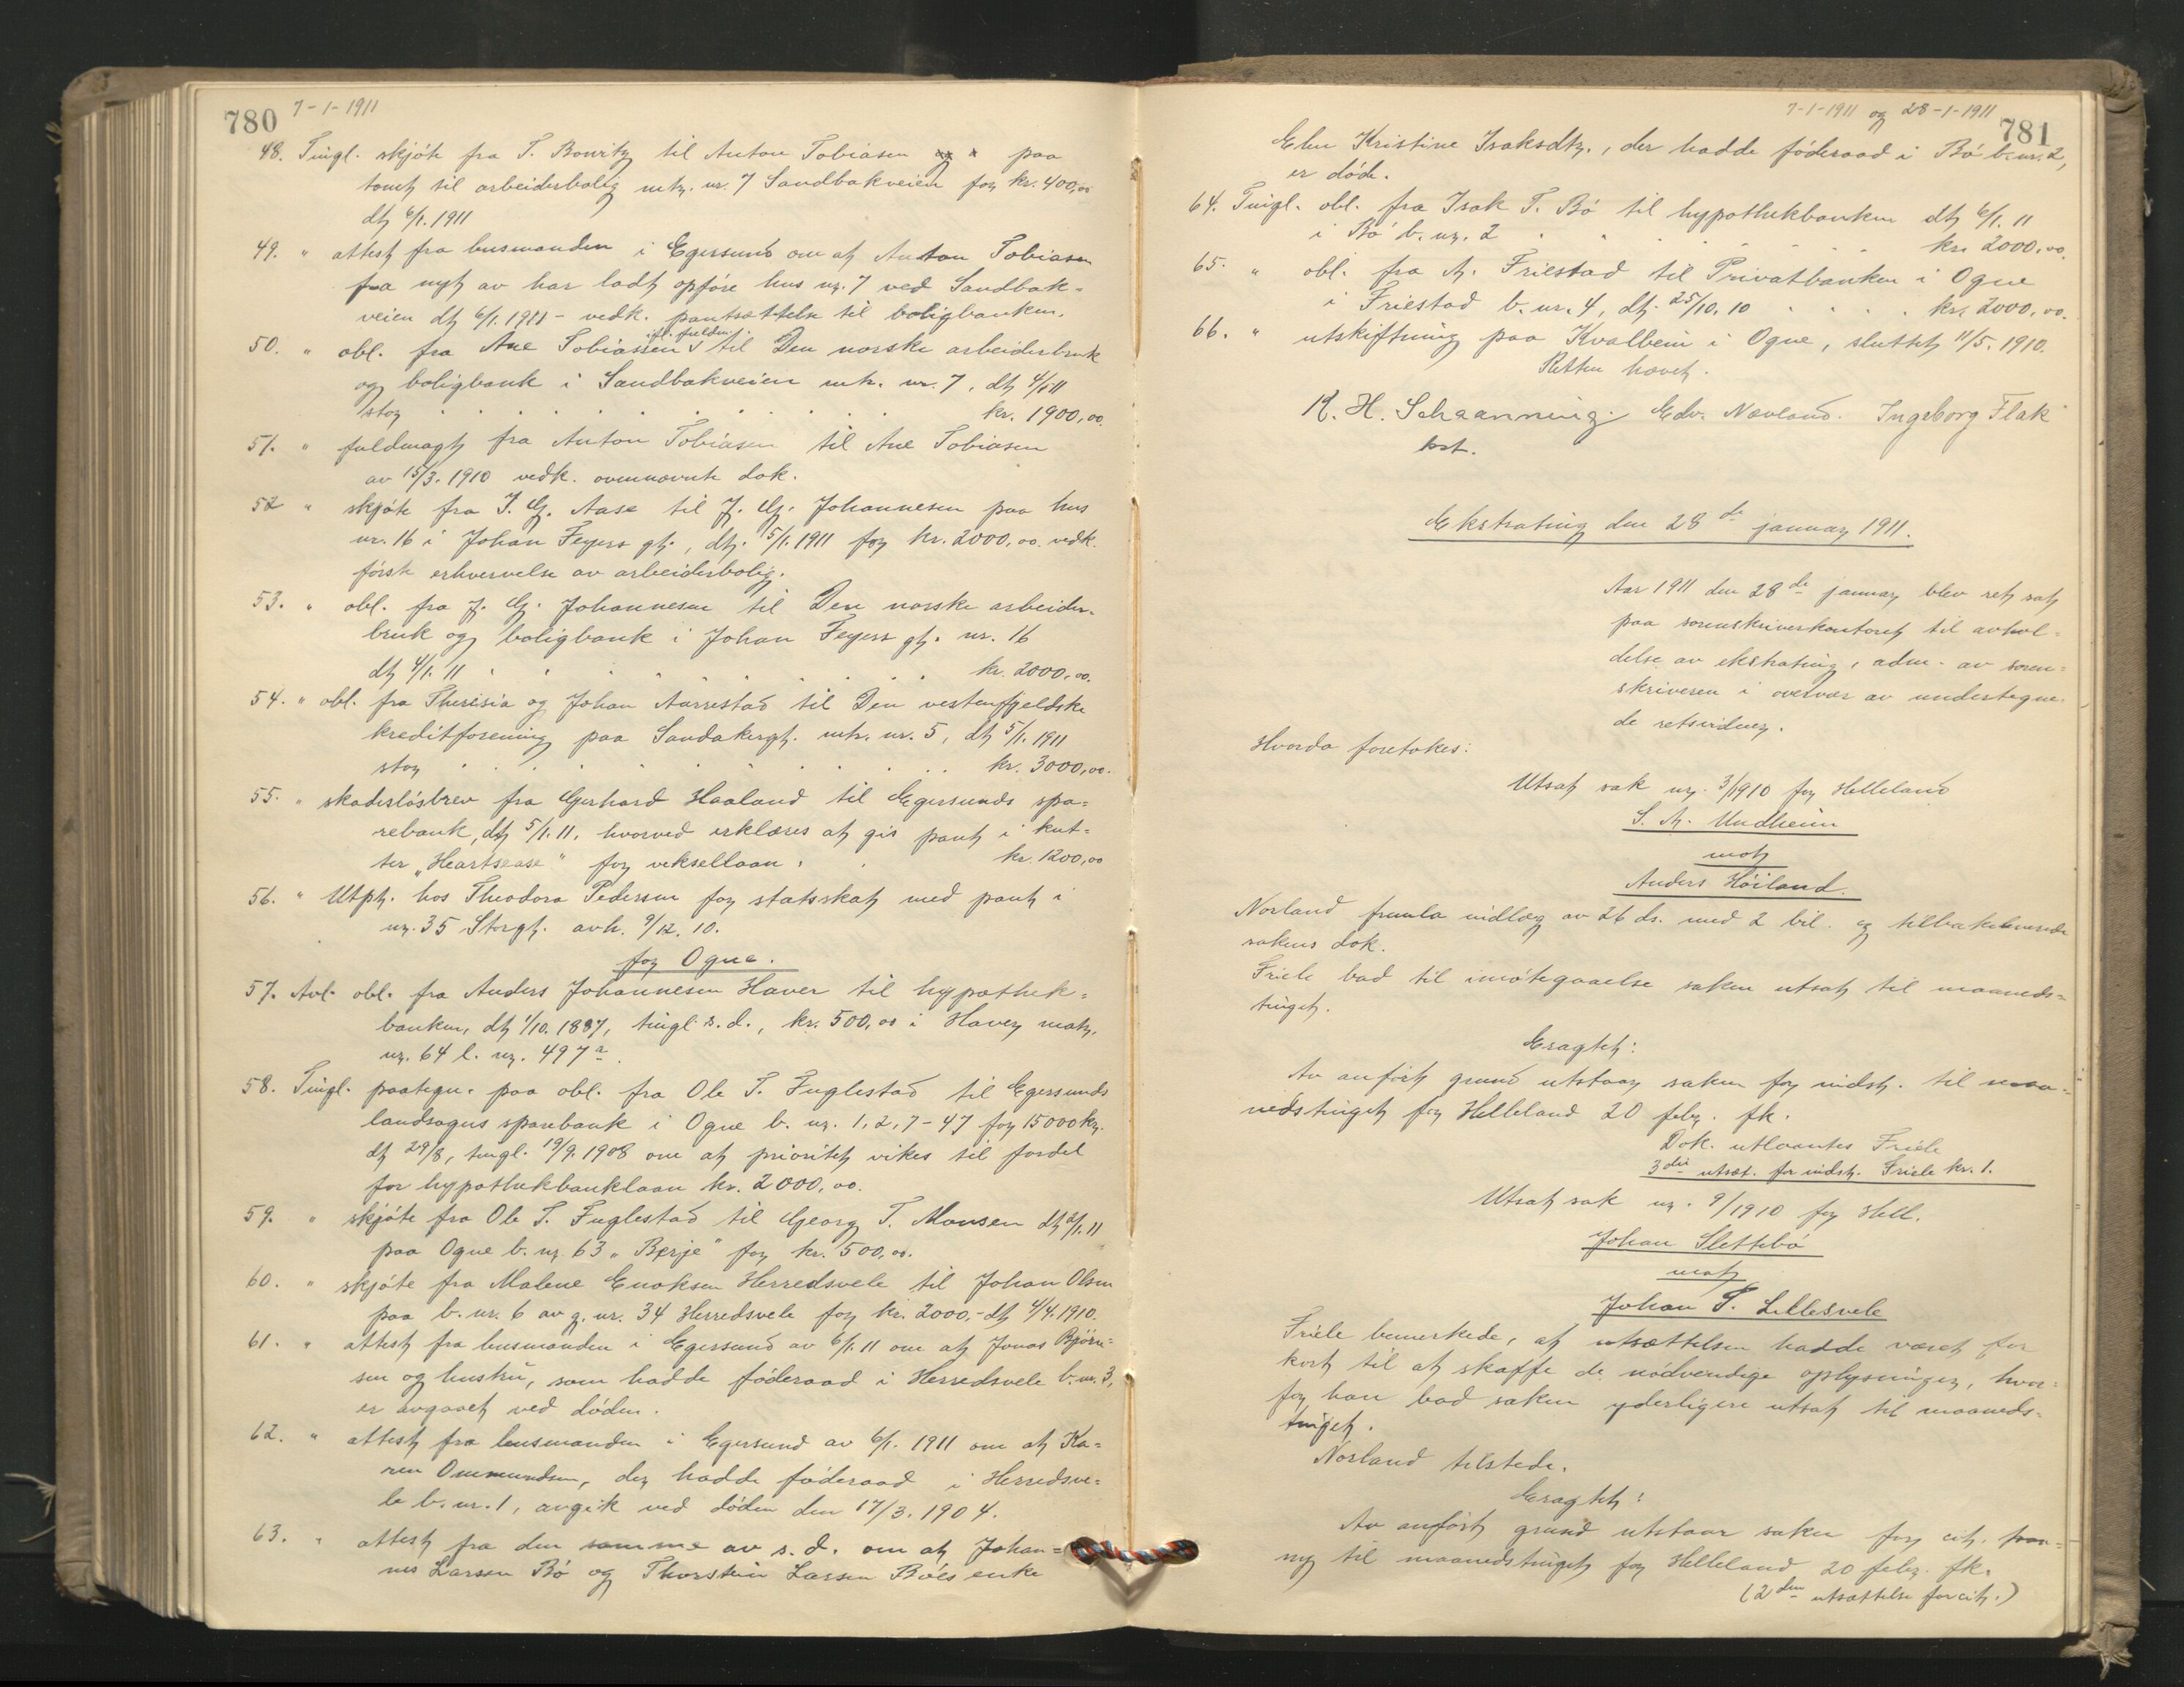 780 7-1-1911
48. Tingl. skjöte fra T. Bowitz til Anton Tobiasen paa
tomt til arbeiderbolig mtr. nr. 7 Sandbakveien for kr. 400,00
dt 6/1. 1911
49. " attest fra lensmanden i Egersund om at Anton Tobiasen
fra nyt av har ladt opföre hus nr. 7 ved Sandbak=
veien dt 6/1. 1911 - vedk. pantsættelse til boligbanken.
50. " obl. fra Ane Tobiassen ifl. fuldm. til Den norske arbeiderbruk
og boligbank i Sandbakveien mtr. nr. 7, dt 4/1 11
stor . . . . . . . . . . kr. 1900,00.
51. " fuldmagt fra Anton Tobiasen til Ane Tobiasen
av 15/3. 1910 vedk. ovennævnte dok.
52 " skjöte fra J. G. Aase til J. G. Johannesen paa hus
nr. 16 i Johan Feyers gt., dt. 5/1. 1911 for kr. 2000,00. vedk.
förste erhvervelse av arbeiderbolig.
53. " obl. fra J. G. Johannesen til Den norske arbeider-
bruk og boligbank i Johan Feyers gt. nr. 16
dt 4/1. 11 . . . . . . . . kr. 2000,00.
54. " obl. fra Theresia og Johan Aarrestad til Den vestenfjeldske
kreditforening paa Sandakergt. mtr. nr. 5, dt 5/1. 1911
stor . . . . . . . . . . kr. 3000,00.
55. " skadeslösbrev fra Gerhard Haaland til Egersunds spa=
rebank, dt 5/1. 11, hvorved erklæres at gis pant i kut=
ter "Heartsease" for veksellaan . . kr. 1200,00
56. " Utpt. hos Theodora Pedersen for statsskat med pant i
nr. 35 Storgt. avh. 9/12. 10.
for Ogne.
57. Avl. obl. fra Anders Johannesen Haver til hypothek=
banken, dt 1/10. 1887, tingl. s. d., kr. 500,00 i Haver matr.
nr. 64 l. nr. 497 a.
58. Tingl. paategn. paa obl. fra Ole T. Fuglestad til Egersunds
landsogns sparebank i Ogne b. nr. 1, 2, 7-47 for 15000 kr.
dt 29/8, tingl. 19/9. 1908 om at prioritet vikes til fordel
for hypothekbanklaan kr. 2000,00.
59. " skjöte fra Ole T. Fuglestad til Georg T. Monsen dt 2/1. 11
paa Ogne b. nr. 63 "Berje" for kr. 500,00.
60. " skjöte fra Malene Enoksen Herredsvele til Johan Olsen
paa b. nr. 6 av g. nr. 34 Herredsvele for kr. 2000,- dt 4/4. 1910.
61. " attest fra lensmanden i Egersund av 6/1. 11 om at Jonas Björn=
sen og hustru, som hadde föderaad i Herredsvele b. nr. 3,
er avgaaet ved döden.
62. " attest fra lensmanden i Egersund av 6/1. 1911 om at Ka=
ren Ommundsen, der hadde föderaad i Herredsve=
le b. nr. 1, avgik ved döden den 17/3. 1904.
63. " attest fra den samme av s. d. om at Johan=
nes Larsen Bö og Thorstein Larsen Böes enke
7-1-1911 og 28-1-1911 781
Elen Kristine Isaksdtr., der hadde föderaad i Bö b. nr. 2,
er döde.
64. Tingl. obl. fra Isak T. Bö til hypothekbanken dt 6/1. 11
i Bö b. nr. 2 . . . . . . . . kr. 2000,00.
65. " obl. fra A. Friestad til Privatbanken i Ogne
i Friestad b. nr. 4, dt. 25/10. 10 . . . . kr. 2000,00.
66. " utskiftning paa Kvalbein i Ogne, sluttet 11/5. 1910.
Retten hævet.
K. H. Schaanning. Edv. Nævland. Ingeborg Flak
kst.
Ekstrating den 28de januar 1911.
Aar 1911 den 28de januar blev ret sat
paa sorenskriverkontoret til avhol=
delse av ekstrating, adm. av soren=
skriveren i overvær av undertegne=
de retsvidner.
Hvorda foretokes:
Utsat sak nr. 3/1910 for Helleland
S. A. Undheim
mot
Anders Höiland.
Norland fremla indlæg av 26 ds. med 2 bil. og tilbakeleverede
sakens dok.
Friele bad til imötegaaelse saken utsat til maaneds=
tinget.
Eragtet:
Av anfört grund utstaar saken for indst. til maa=
nedstinget for Helleland 20 febr. fk.
Dok. utlaantes Friele
3die utsæt. for indst. Friele kr. 1.
Utsat sak nr. 9/1910 for Hell.
Johan Slettebö
mot
Johan T. Lillesvele
Friele bemerkede, at utsættelsen hadde været for
kort til at skaffe de nödvendige oplysninger, hvor=
for han bad saken yderligere utsat til maaneds=
tinget.
Norland tilstede.
Eragtet:
Av anfört grund utstaar saken for cit. paa=
ny til maanedstinget for Helleland 20 febr. fk.
(2den utsættelse for cit.)